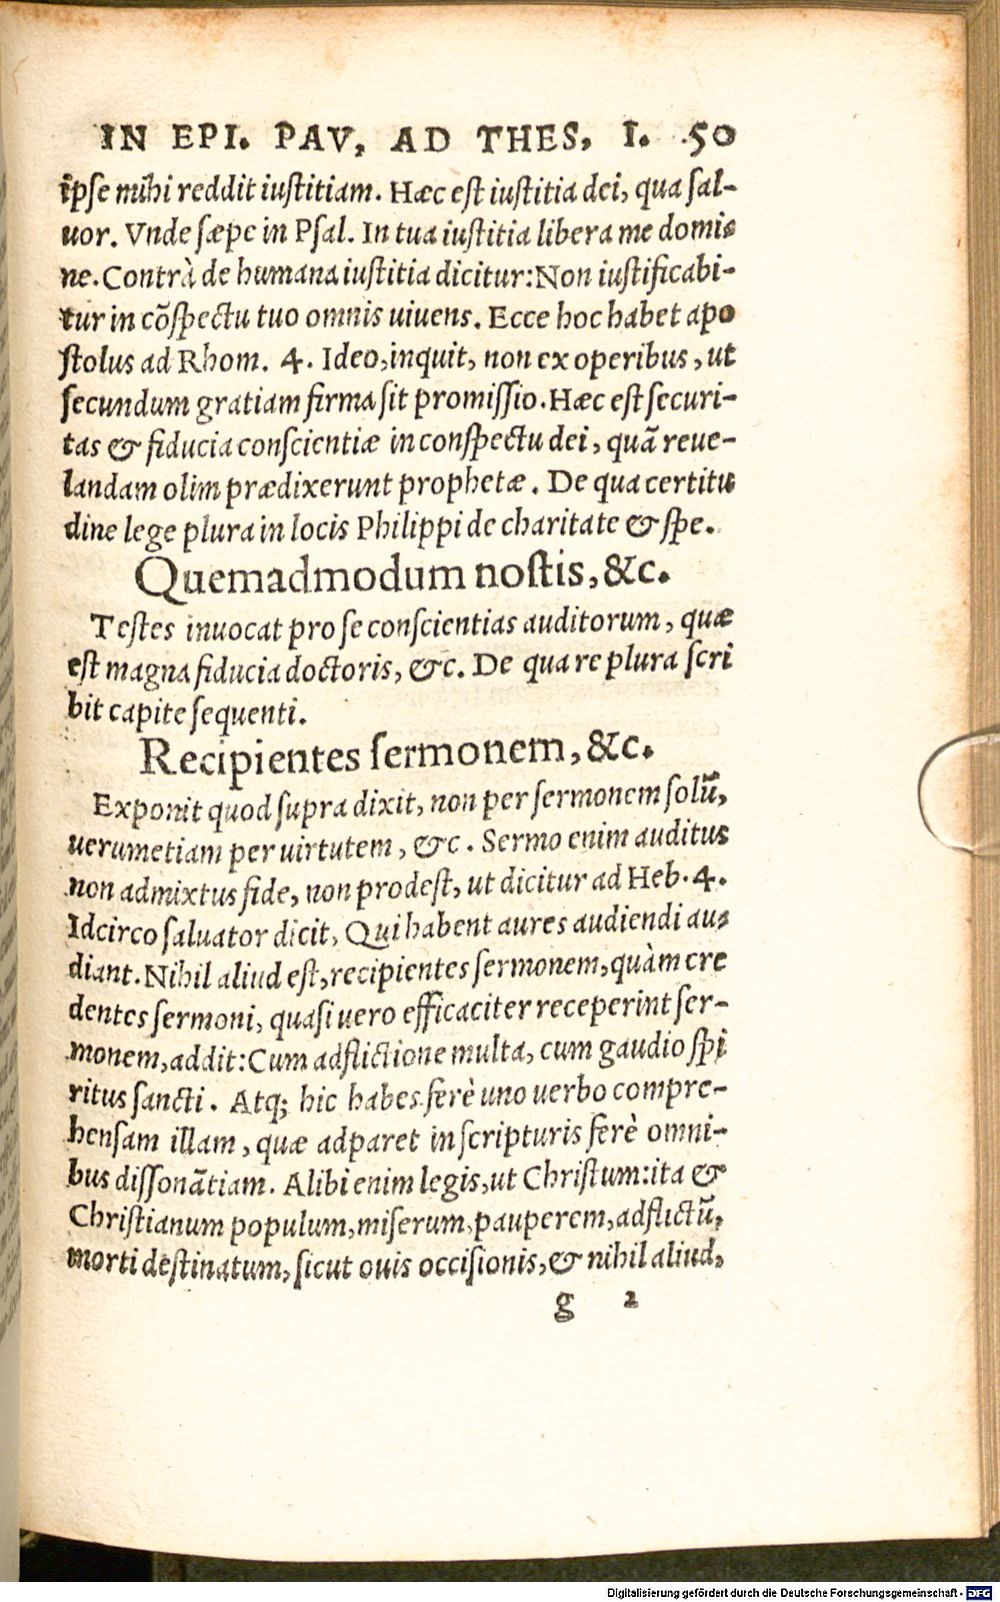 IN EPI. PAV, AD THES, I. 50
ipse mihi reddit iustitiam. Hæc est iustitia dei, qua sal-
uor. Vnde sæpe in Psal. In tua iustitia libera me domi-
ne. Contrà de humana iustitia dicitur: Non iustificabi-
tur in cõspectu tuo omnis uiuens. Ecce hoc habet apo
stolus ad Rhom. 4. Ideo, inquit, non ex operibus, ut
secundum gratiam firma sit promissio. Hæc est securi-
tas & fiducia conscientiæ in conspectu dei, quã reue-
landam olim prædixerunt prophetæ. De qua certitu
dine lege plura in locis Philippi de charitate & spe.
Quemadmodum nostis, &c.
Testes inuocat pro se conscientias auditorum, quæ
est magna fiducia doctoris, &c. De qua re plura scri
bit capite sequenti.
Recipientes sermonem, &c.
Exponit quod supra dixit, non per sermonem solũ,
uerumetiam per uirtutem, &c. Sermo enim auditus
non admixtus fide, non prodest, ut dicitur ad Heb. 4.
Idcirco saluator dicit, Qui habent aures audiendi au-
diant. Nihil aliud est, recipientes sermonem, quàm cre
dentes sermoni, quasi uero efficaciter receperint ser-
monem, addit: Cum adflictione multa, cum gaudio spi
ritus sancti. Atq; hic habes ferè uno uerbo compre-
hensam illam, quæ adparet in scripturis ferè omni-
bus dissonãtiam. Alibi enim legis, ut Christum: ita &
Christianum populum, miserum, pauperem, adflictũ,
morti destinatum, sicut ouis occisionis, & nihil aliud,
g 2
Digitalisierung gefördert durch die Deutsche Forschungsgemeinschaft - DFG